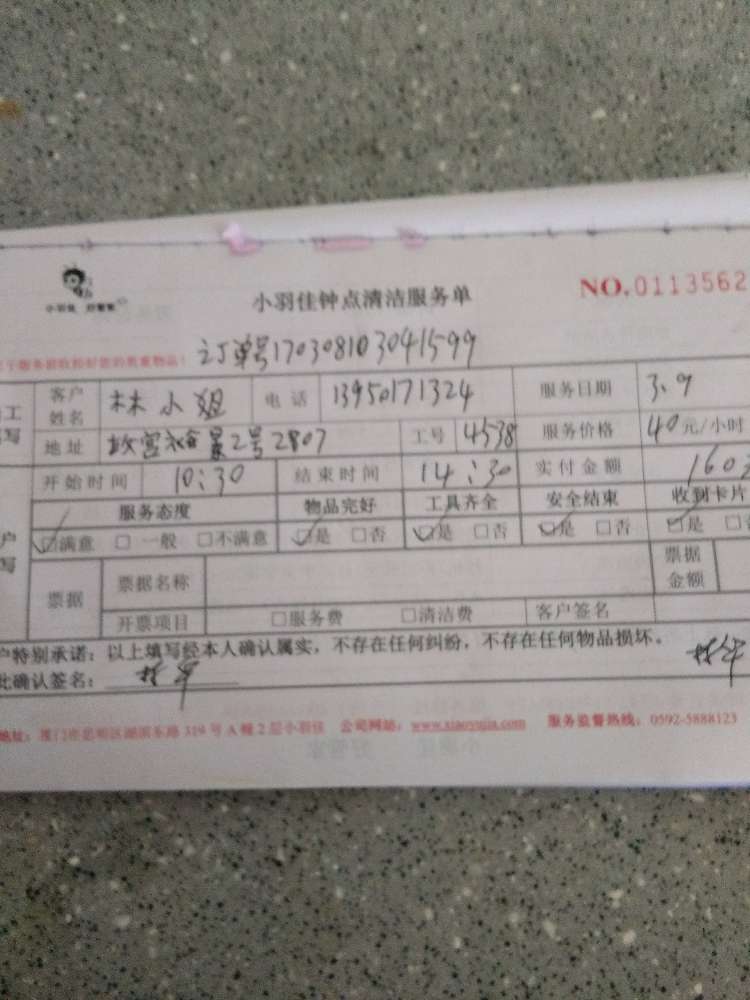 小羽佳钟点清洁服务单
NO.0113562
订单号170308103041599
客户姓名 林小姐 电话 13950171324 服务日期 3.9
地址 2号2807 工号 4538 服务价格 40元/小时
开始时间 10:30 结束时间 14:30 实付金额 160
服务态度 物品完好 工具齐全 安全结束 收到卡片
☑满意 □一般 □不满意 ☑是 □否 ☑是 □否 ☑是 □否 ☑是 □
票据 票据名称 票据金额
开票项目 □服务费 □清洁费 客户签名
户特别承诺：以上填写经本人确认属实，不存在任何纠纷，不存在任何物品损坏。
此确认签名：
地址：厦门市思明区湖滨东路319号A幢2层小羽佳 公司网站：www.xiaoyujia.com 服务监督热线：0592-5888123